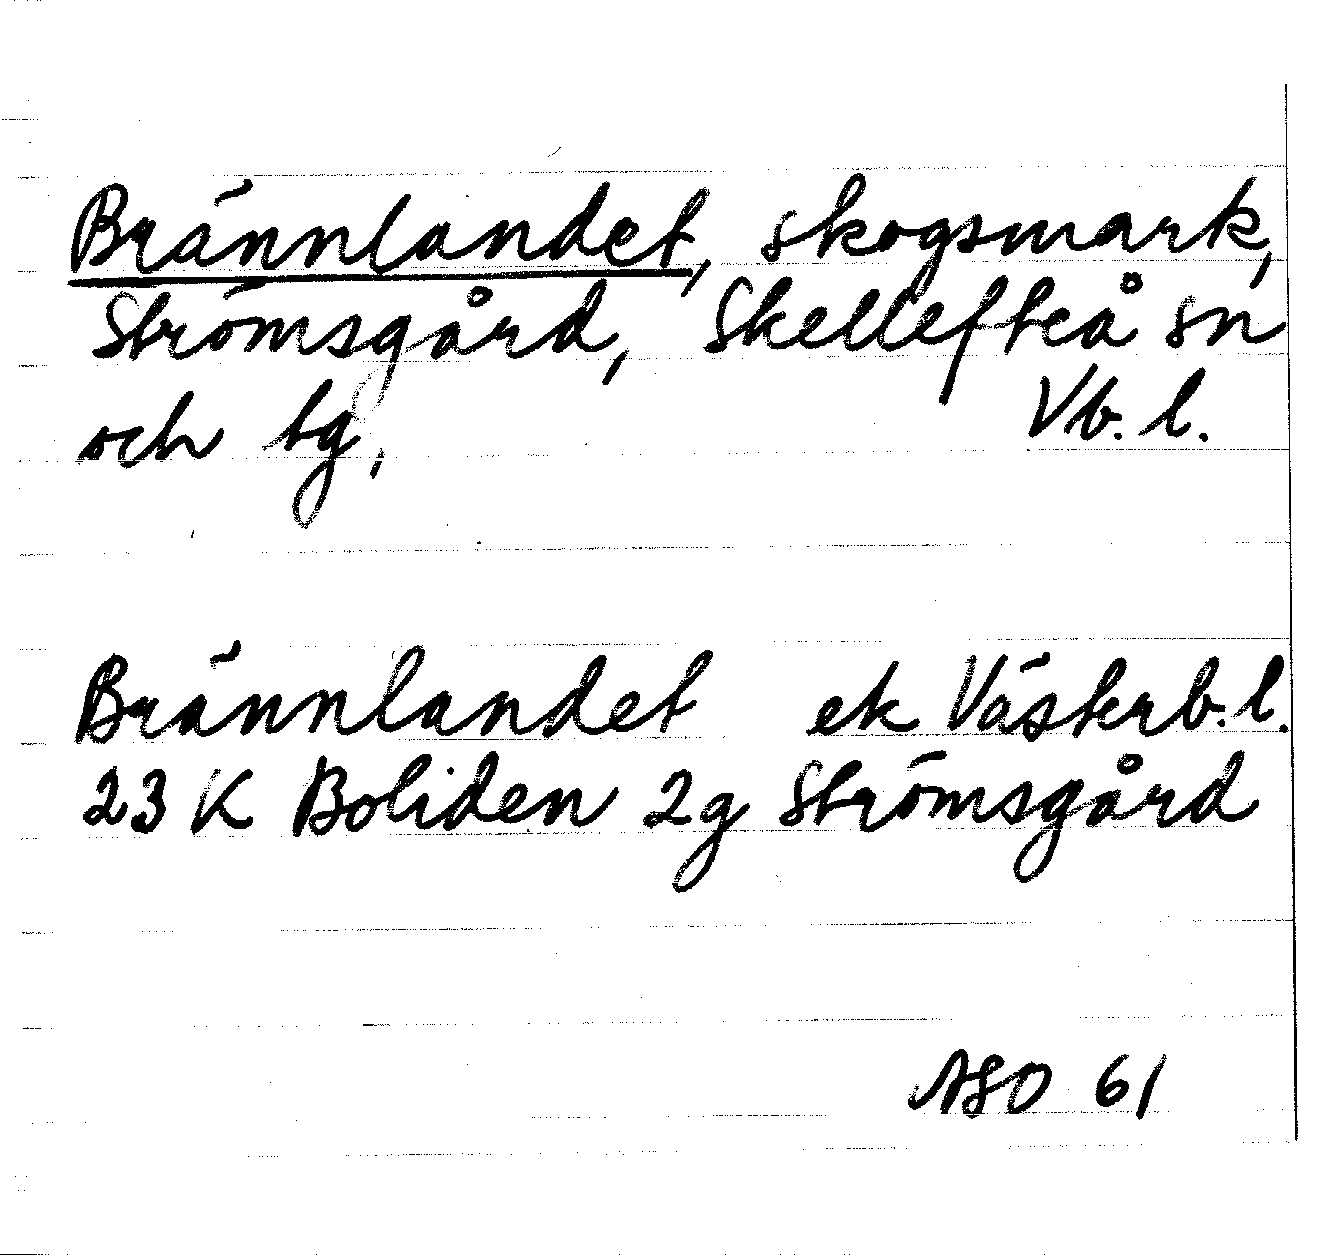 Brännlandet, skogsmark,
Strömsgård, Skellefteå sn
och tg, Vb. l.
Brännlandet ek Västerb. l.
23 K Boliden 2g Strömsgård
ASO 61